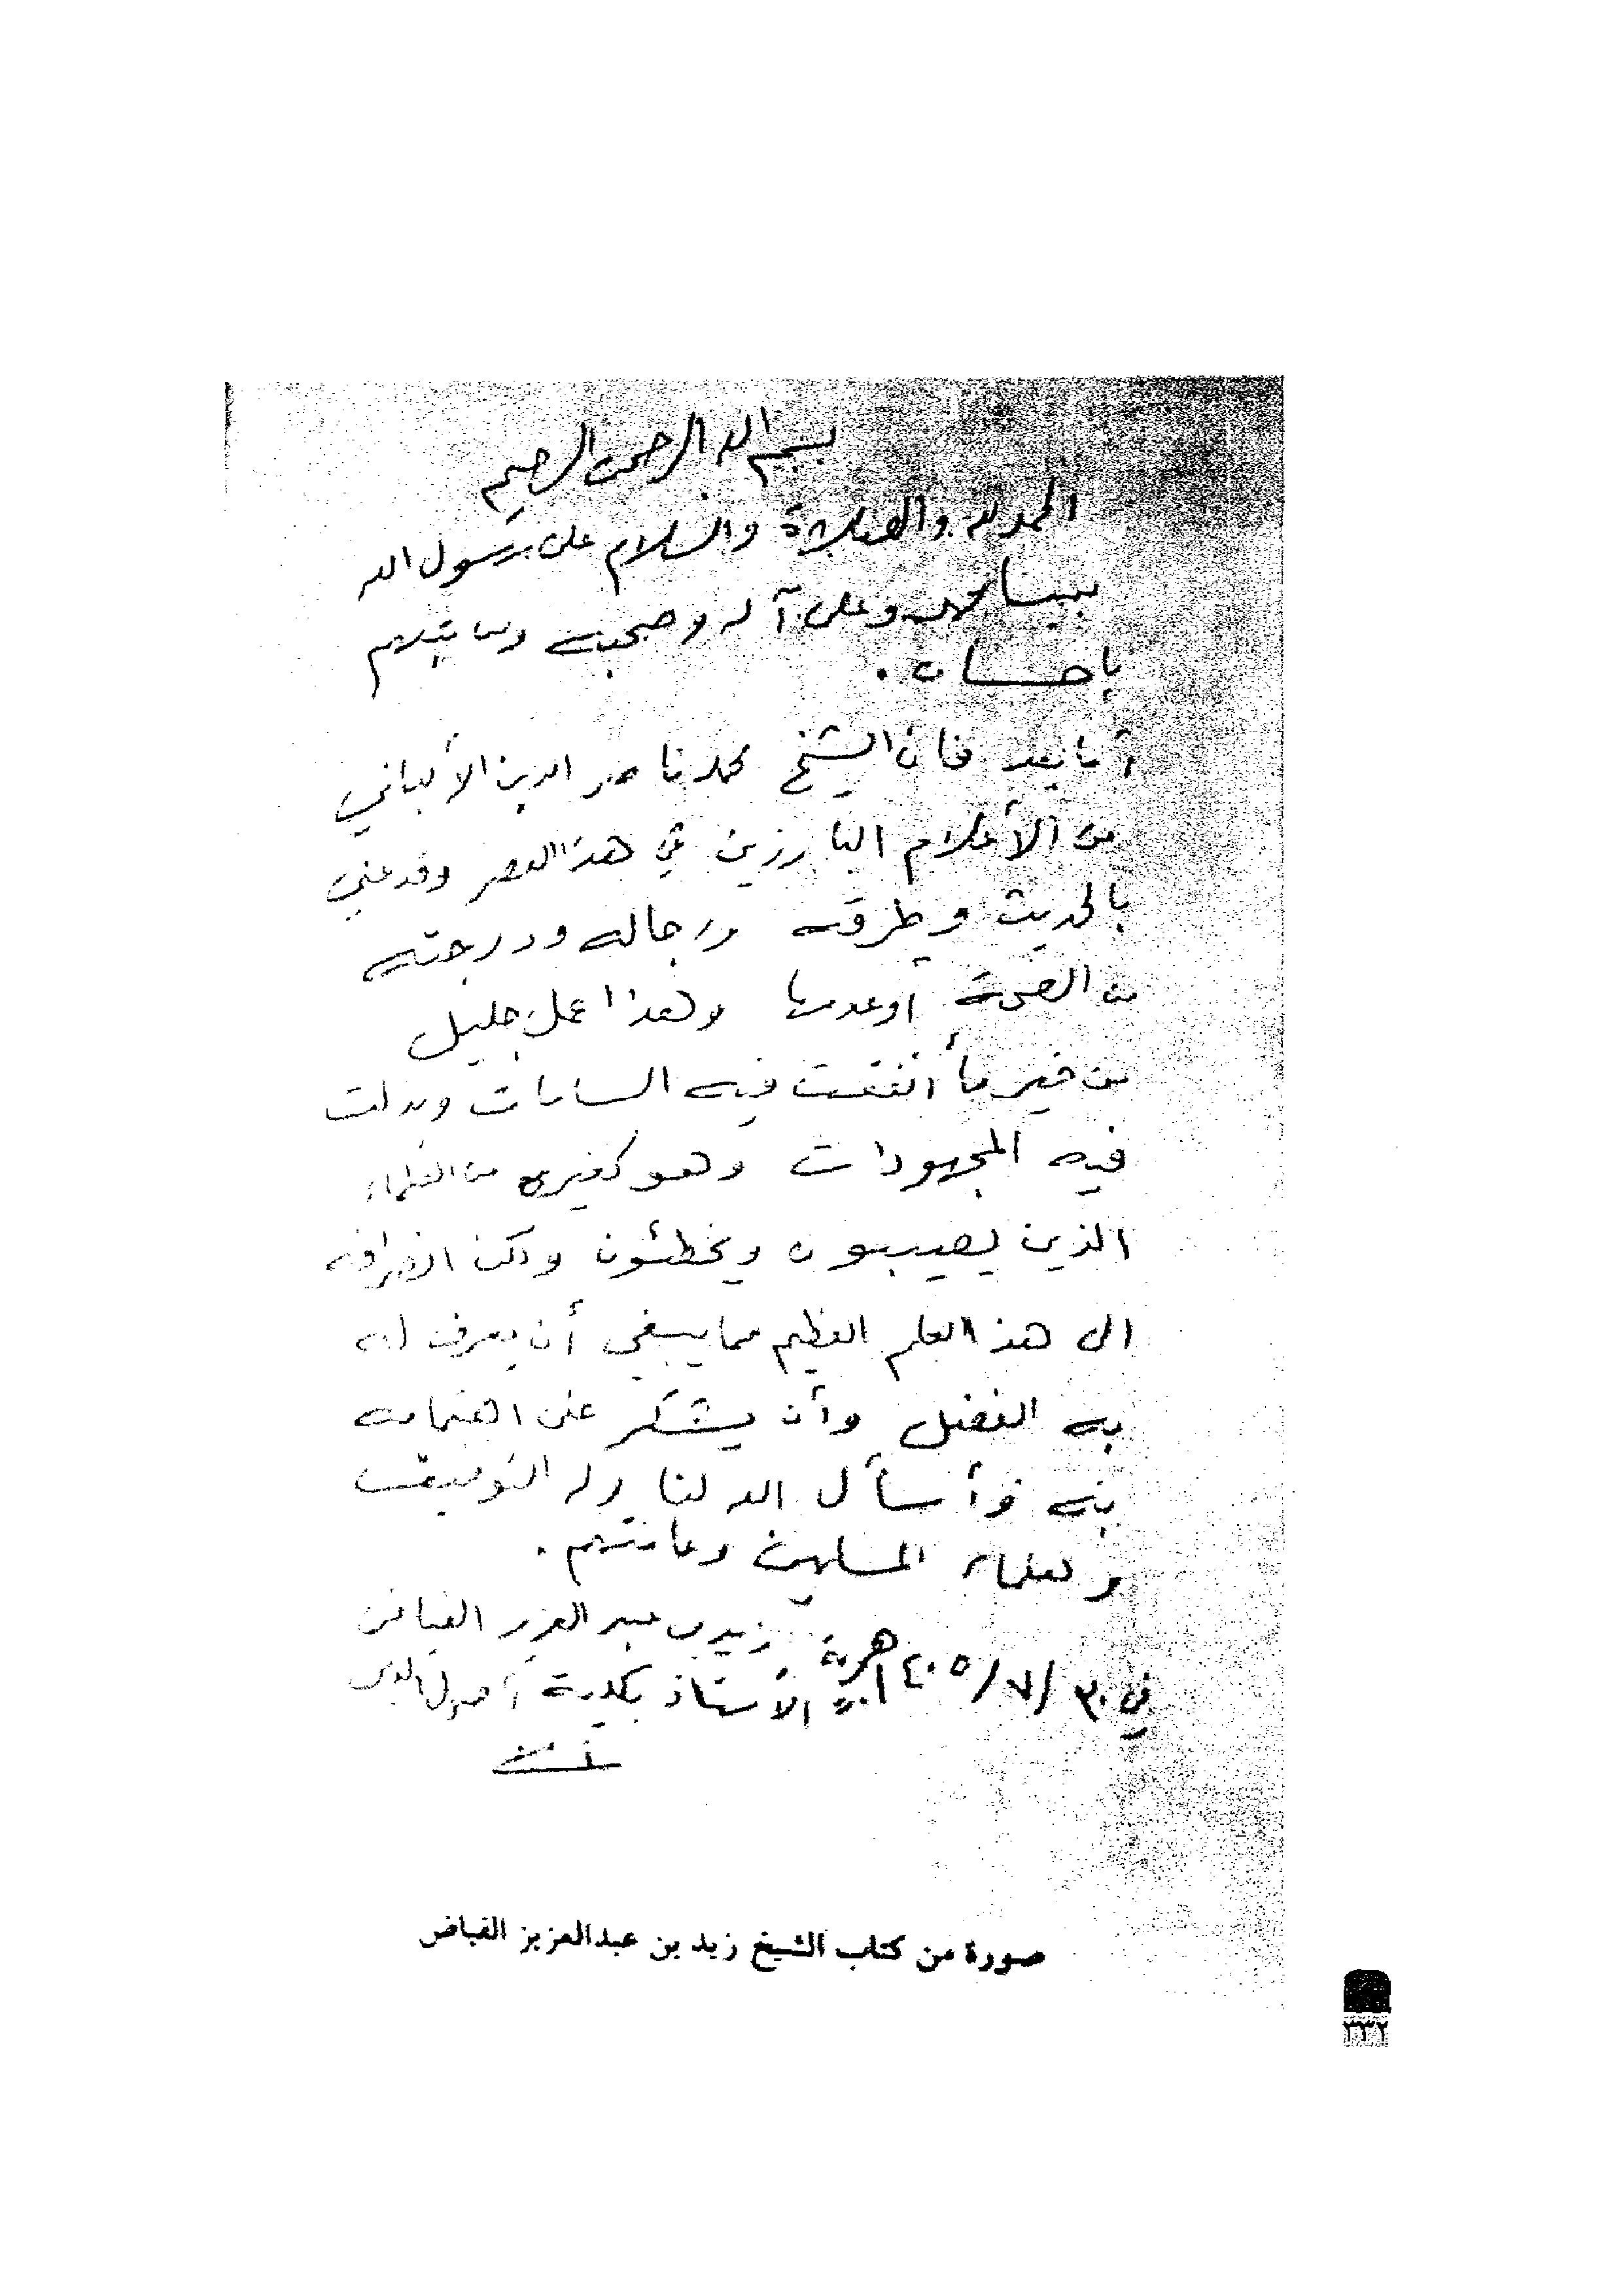 بسم الله الرحمن الرحيم
الحمد لله والصلاة والسلام على رسول الله
نبينا محمد وعلى آله وصحبه ومن تبعهم
بإحسان .
أما بعد فان الشيخ محمد ناصر الدين الألباني
من الأعلام البارزين في هذا العصر وقد عني
بالحديث وطرقه ورجاله ودرجته
من الصحة أو عدمها وهذا عمل جليل
من خير ما أنفقت فيه الساعات وبذلت
فيه المجهودات وهو كغيره من العلماء
الذين يصيبون ويخطئون ولكن انصرافه
الى هذا العلم العظيم مما ينبغي أن يعرف له
به الفضل وأن يشكر على اهتمامه
به وأسأل الله لنا وله التوفيق
ولعلماء المسلمين وعامتهم .
زيد بن عبد العزيز الفياض
في ٣٠/٧/١٤٠٥ هجرية الأستاذ بكلية أصول الدين
صورة من كتاب الشيخ زيد بن عبدالعزيز الفياض
٣٣٢